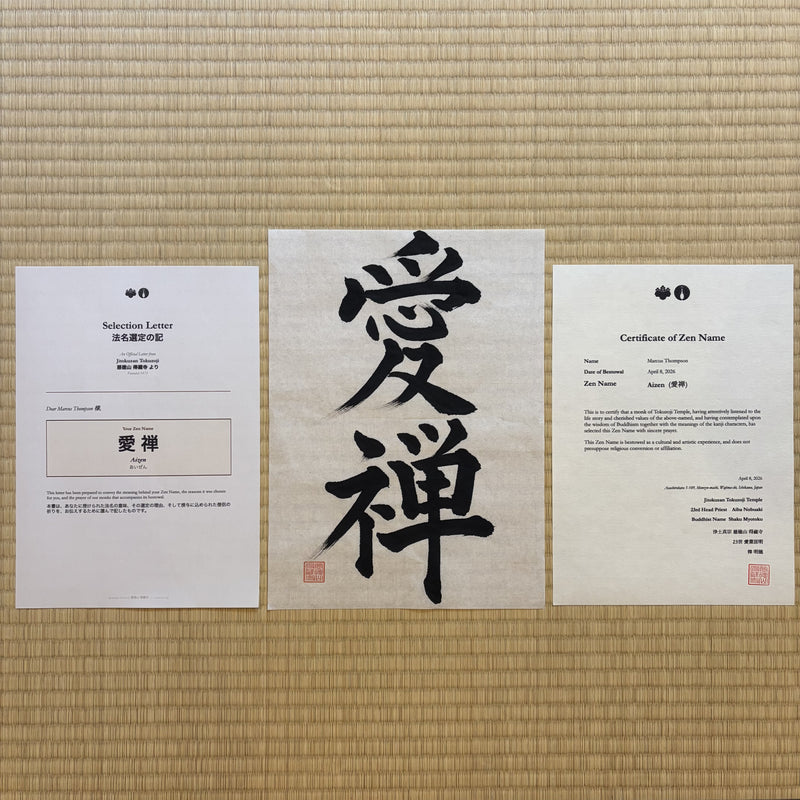 Selection Letter
法名選定の記
An Official Letter from
Jitokuzan Tokuzoji
慈徳山 得藏寺 より
Dear Marcus Thompson 様,
Your Zen Name
愛禅
Aizen
あいぜん
This letter has been prepared to convey the meaning behind your Zen Name, the reasons it was chosen
for you, and the prayer of our monks that accompanies its bestowal.
本書は、あなたに授けられた法名の意味、その選定の理由、そして授与に込められた僧侶の
祈りを、お伝えするために謹んで記したものです。
愛
禅
Certificate of Zen Name
Name Marcus Thompson
Date of Bestowal April 8, 2026
Zen Name Aizen (愛禅)
This is to certify that a monk of Tokuzoji Temple, having attentively listened to the
life story and cherished values of the above-named, and having contemplated upon
the wisdom of Buddhism together with the meanings of the kanji characters, has
selected this Zen Name with sincere prayer.
This Zen Name is bestowed as a cultural and artistic experience, and does not
presuppose religious conversion or affiliation.
April 8, 2026
Jitokuzan Tokuzoji Temple
23rd Head Priest Aiba Nobuaki
Buddhist Name Shaku Myotoku